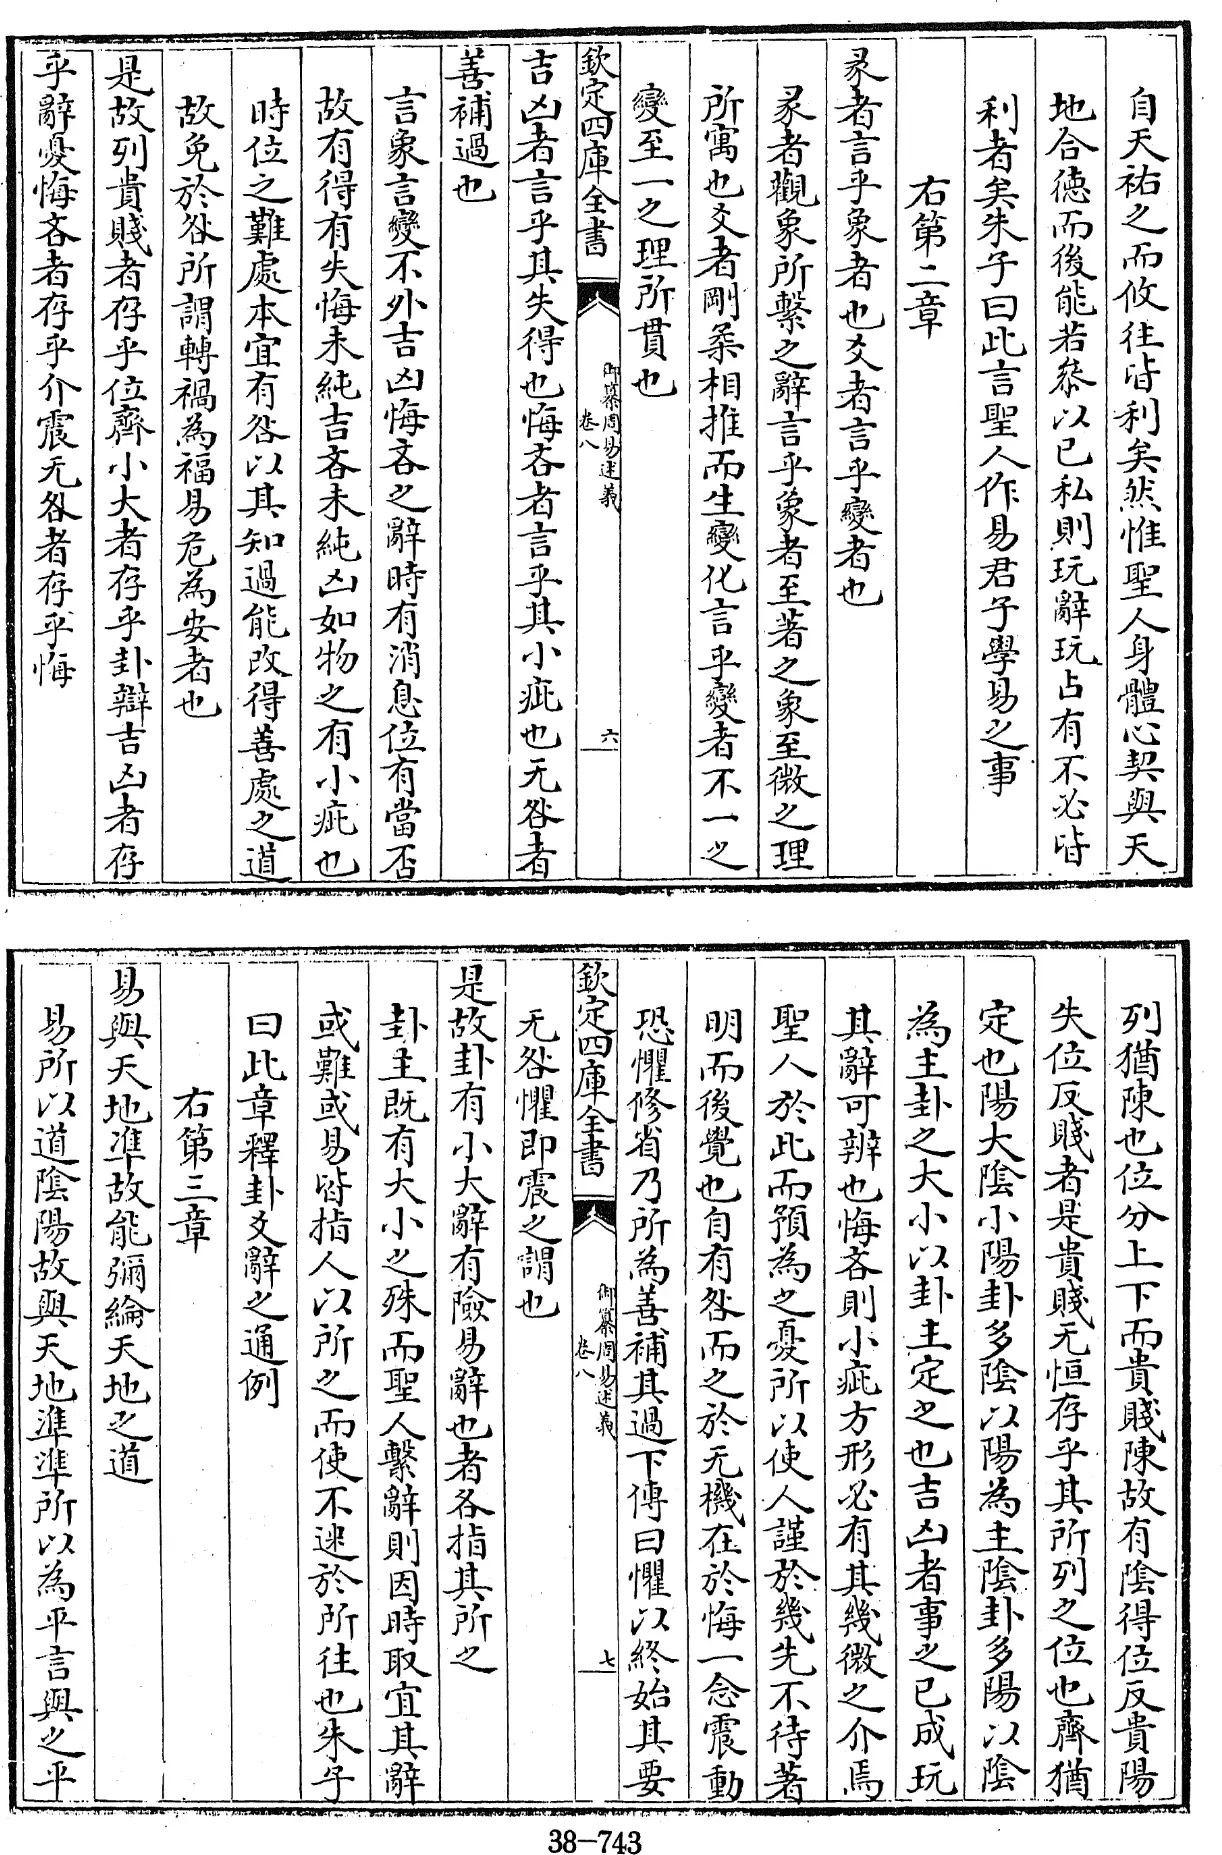 自天祐之而攸往皆利矣然惟聖人身體心契與天
地合德而後能若叅以已私則玩辭玩占有不必皆
利者矣朱子曰此言聖人作易君子學易之事
右第二章
彖者言乎象者也爻者言乎變者也
彖者觀象所繫之辭言乎象者至著之象至微之理
所寓也爻者剛柔相推而生變化言乎變者不一之
變至一之理所貫也
欽定四庫全書
御纂周易述義
卷八
六
吉凶者言乎其失得也悔吝者言乎其小疵也无咎者
善補過也
言象言變不外吉凶悔吝之辭時有消息位有當否
故有得有失悔未純吉吝未純凶如物之有小疵也
時位之難處本宜有咎以其知過能改得善處之道
故免於咎所謂轉禍為福易危為安者也
是故列貴賤者存乎位齊小大者存乎卦辯吉凶者存
乎辭憂悔吝者存乎介震无咎者存乎悔
列猶陳也位分上下而貴賤陳故有陰得位反貴陽
失位反賤者是貴賤无恒存乎其所列之位也齊猶
定也陽大陰小陽卦多陰以陽為主陰卦多陽以陰
為主卦之大小以卦主定之也吉凶者事之已成玩
其辭可辨也悔吝則小疵方形必有其幾微之介焉
聖人於此而預為之憂所以使人謹於幾先不待著
明而後覺也自有咎而之於无機在於悔一念震動
恐懼修省乃所為善補其過下傳曰懼以終始其要
欽定四庫全書
御纂周易述義
卷八
七
无咎懼即震之謂也
是故卦有小大辭有險易辭也者各指其所之
卦主既有大小之殊而聖人繫辭則因時取宜其辭
或難或易皆指人以所之而使不迷於所往也朱子
曰此章釋卦爻辭之通例
右第三章
易與天地準故能彌綸天地之道
易所以道陰陽故與天地準準所以為平言與之平
38-743